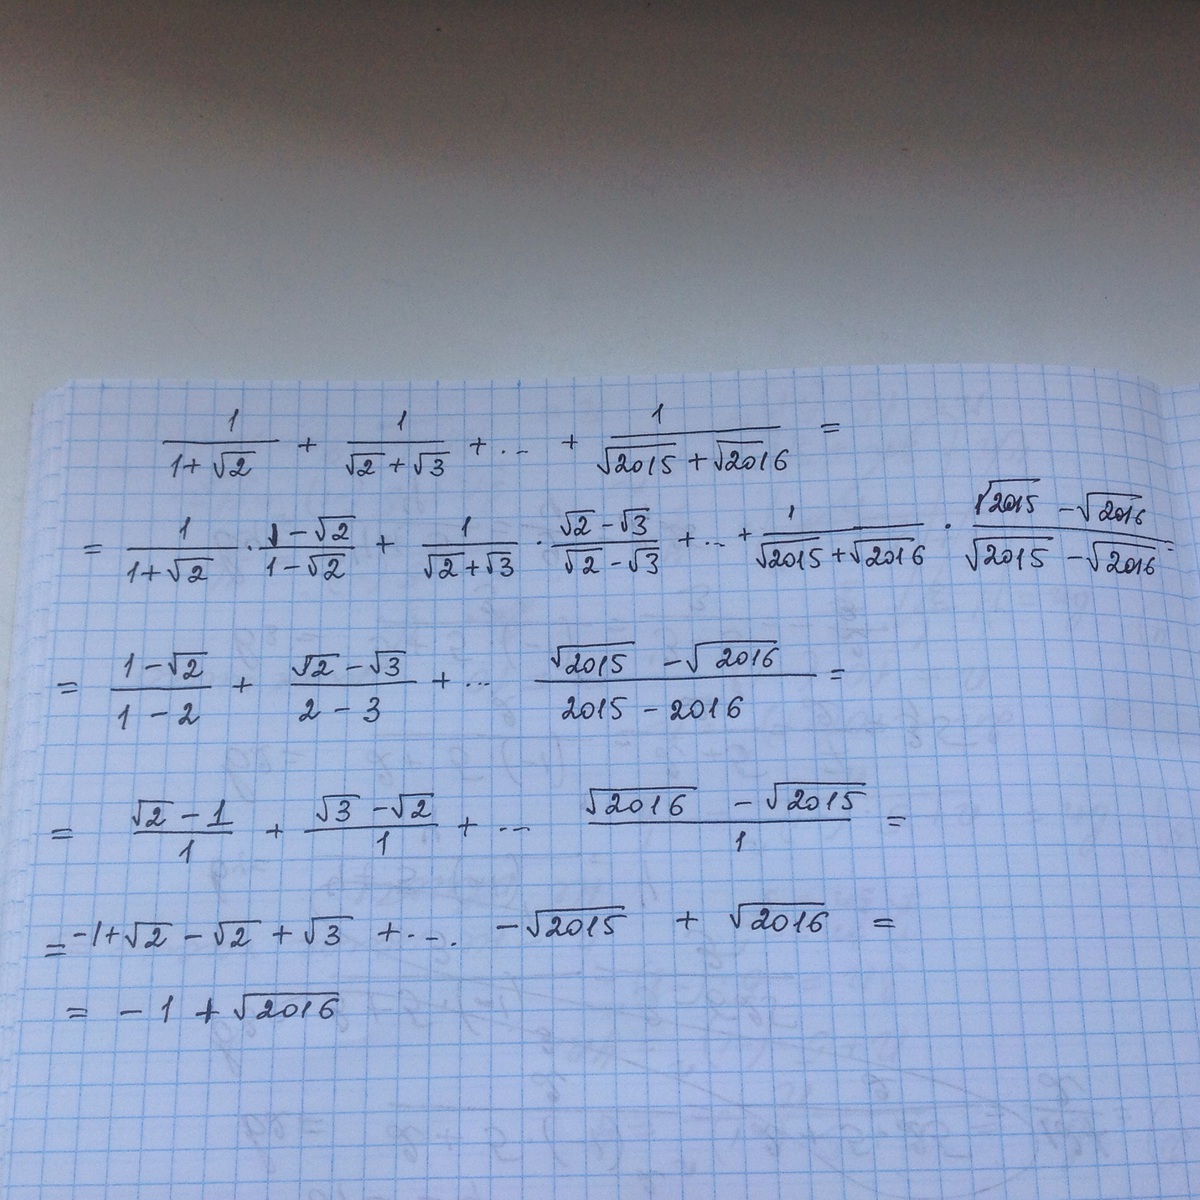 1/(1+√2) + 1/(√2+√3) + ... + 1/(√2015+√2016) =
= 1/(1+√2) · (1-√2)/(1-√2) + 1/(√2+√3) · (√2-√3)/(√2-√3) + ... + 1/(√2015+√2016) · (√2015-√2016)/(√2015-√2016) =
= (1-√2)/(1-2) + (√2-√3)/(2-3) + ... (√2015-√2016)/(2015-2016) =
= (√2-1)/1 + (√3-√2)/1 + ... (√2016-√2015)/1 =
= -1+√2 -√2 +√3 + ... -√2015 + √2016 =
= -1 + √2016